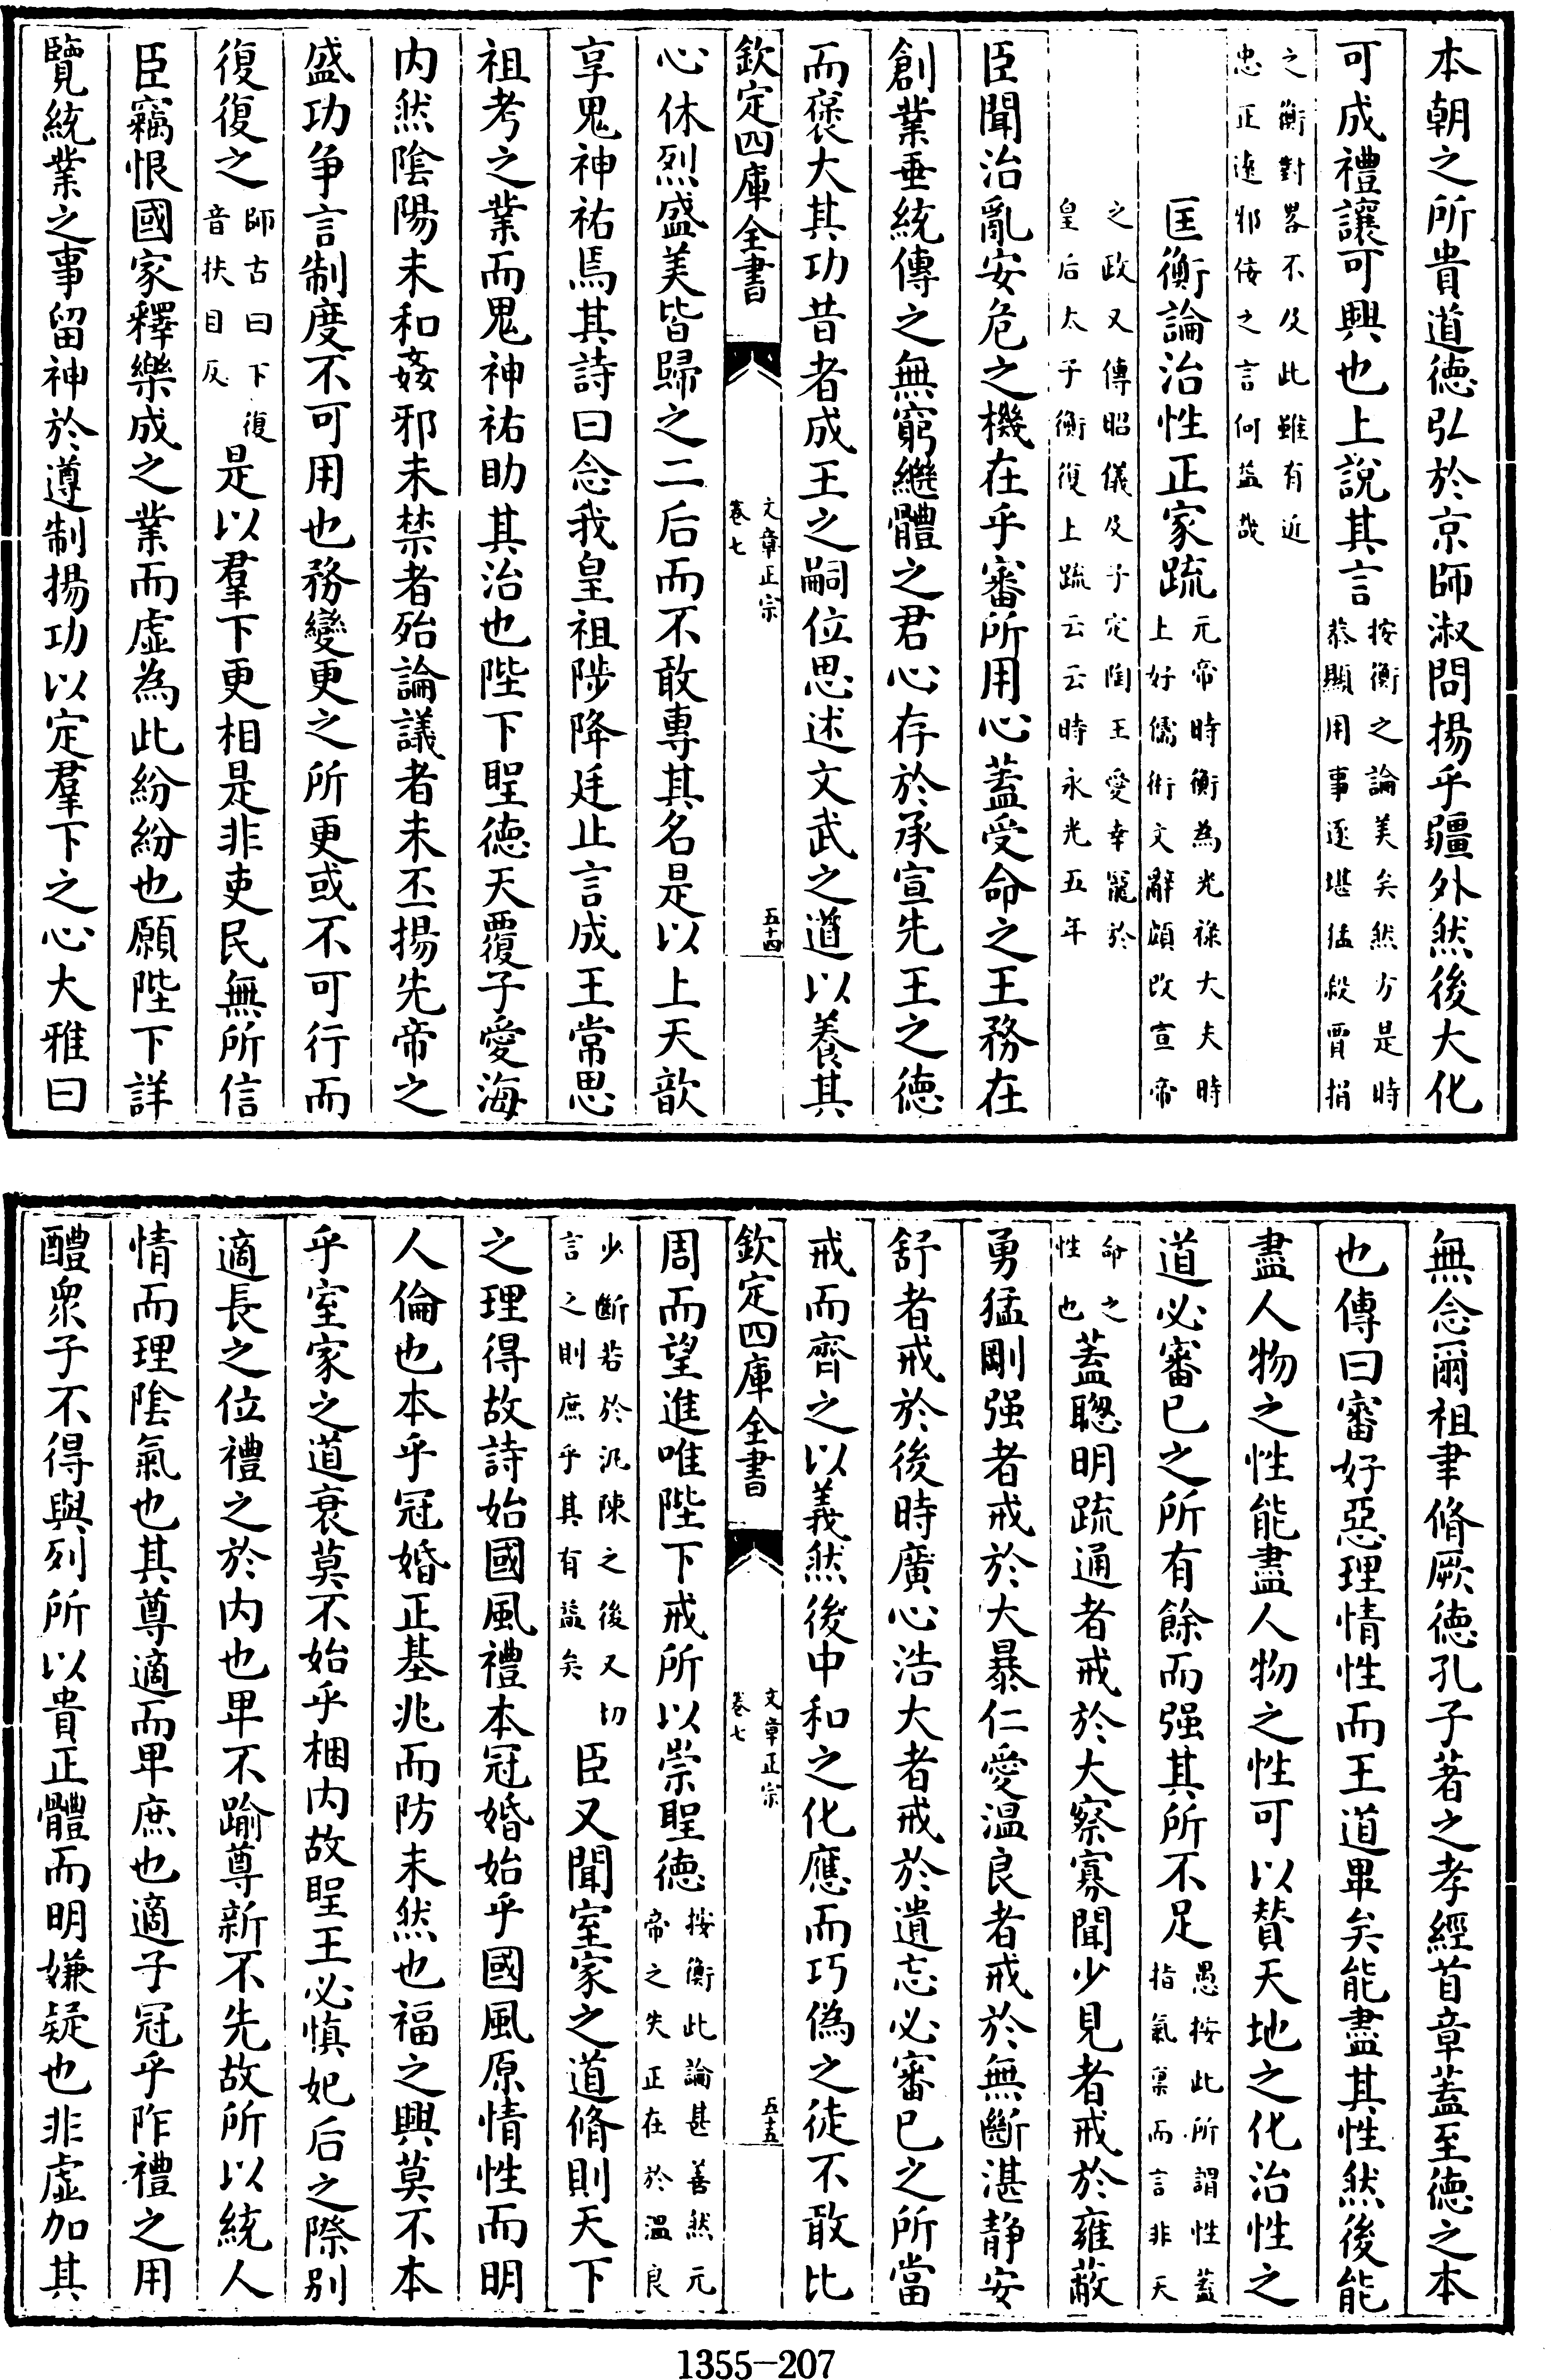 本朝之所貴道徳弘於京師淑問揚乎疆外然後大化
可成禮讓可興也上說其言按衡之論美矣然方是時恭顯用事逐堪猛殺賈捐
之衡對畧不及此雖有近忠正逺邪佞之言何益哉
匡衡論治性正家疏元帝時衡為光祿大夫時上好儒術文辭頗改宣帝
之政又傅昭儀及子定陶王愛幸寵於皇后太子衡復上疏云云時永光五年
臣聞治亂安危之機在乎審所用心蓋受命之王務在
創業垂統傳之無窮繼體之君心存於承宣先王之德
而褒大其功昔者成王之嗣位思述文武之道以養其
欽定四庫全書 文章正宗 卷七 五十四
心休烈盛美皆歸之二后而不敢專其名是以上天歆
享鬼神祐焉其詩曰念我皇祖陟降廷止言成王常思
祖考之業而鬼神祐助其治也陛下聖德天覆子愛海
内然陰陽未和姦邪未禁者殆論議者未丕揚先帝之
盛功争言制度不可用也務變更之所更或不可行而
復復之師古曰下復音扶目反是以羣下更相是非吏民無所信
臣竊恨國家釋樂成之業而虚為此紛紛也願陛下詳
覽統業之事留神於遵制揚功以定羣下之心大雅曰
無念爾祖聿脩厥德孔子著之孝經首章蓋至德之本
也傳曰審好惡理情性而王道畢矣能盡其性然後能
盡人物之性能盡人物之性可以賛天地之化治性之
道必審已之所有餘而强其所不足愚按此所謂性蓋指氣稟而言非天
命之性也蓋聰明疏通者戒於大察寡聞少見者戒於雍蔽
勇猛剛强者戒於大暴仁愛温良者戒於無斷湛静安
舒者戒於後時廣心浩大者戒於遺忘必審已之所當
戒而齊之以義然後中和之化應而巧偽之徒不敢比
欽定四庫全書 文章正宗 卷七 五十五
周而望進唯陛下戒所以崇聖德按衡此論甚善然元帝之失正在於温良
少斷若於汎陳之後又切言之則庶乎其有益矣臣又聞室家之道脩則天下
之理得故詩始國風禮本冠婚始乎國風原情性而明
人倫也本乎冠婚正基兆而防未然也福之興莫不本
乎室家之道衰莫不始乎梱内故聖王必慎妃后之際别
適長之位禮之於内也卑不踰尊新不先故所以統人
情而理陰氣也其尊適而卑庶也適子冠乎阼禮之用
醴衆子不得與列所以貴正體而明嫌疑也非虚加其
1355-207